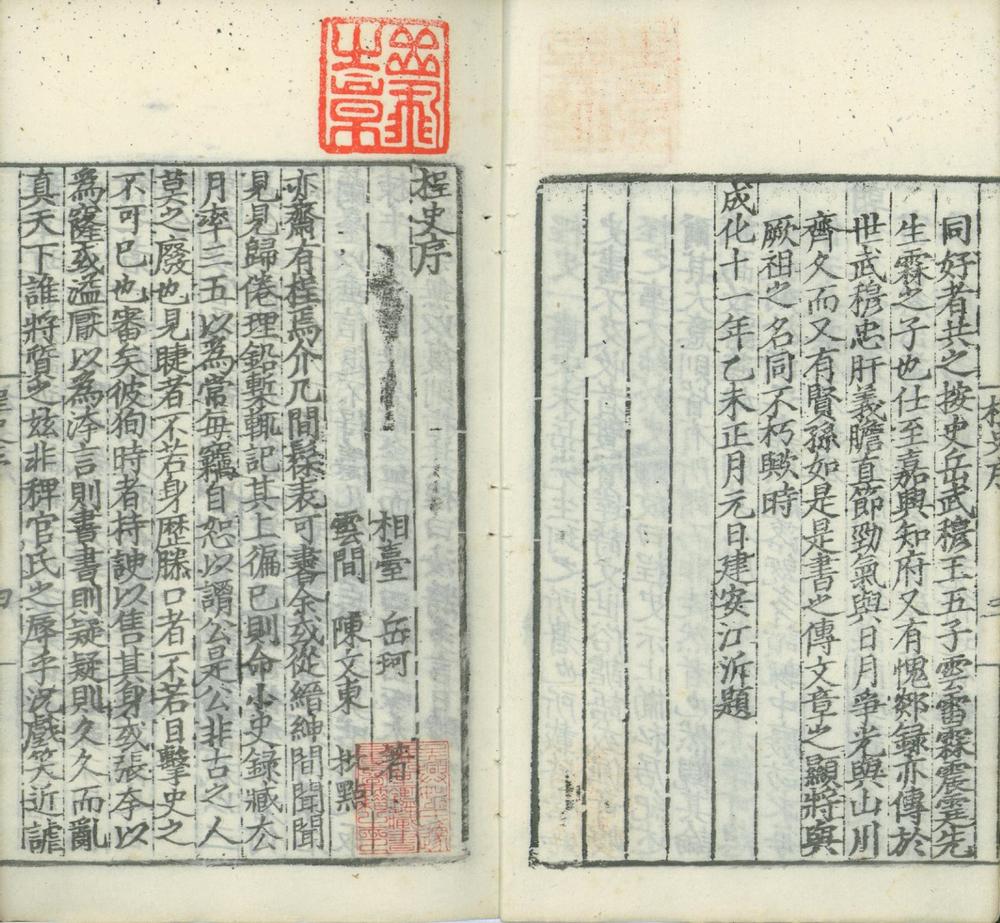 同好者共之按史岳武穆王五子雲雷霖震霆先
生霖之子也仕至嘉興知府又有愧郯録亦傳於
世武穆忠肝義膽直節勁氣與日月爭光與山川
齊久而又有賢孫如是是書之傳文章之顯將與
厥祖之名同不朽歟時
成化十一年乙未正月元日建安江沂題
桯史序
相臺 岳珂 著
雲間 陳文東 批點
亦齋有桯焉介几間髹表可書余或從縉紳間聞聞
見見歸倦理鉛槧輒記其上徧已則命小史録藏去
月率三五以為常每竊自恕以謂公是公非古之人
莫之廢也見睫者不若身歴滕口者不若目擊史之
不可已也審矣彼狥時者持諛以售其身或張夸以
為窿或溢厭以為洿言則書書則疑疑則久久而亂
真天下誰將質之兹非稗官氏之辱乎況戲笑近謔